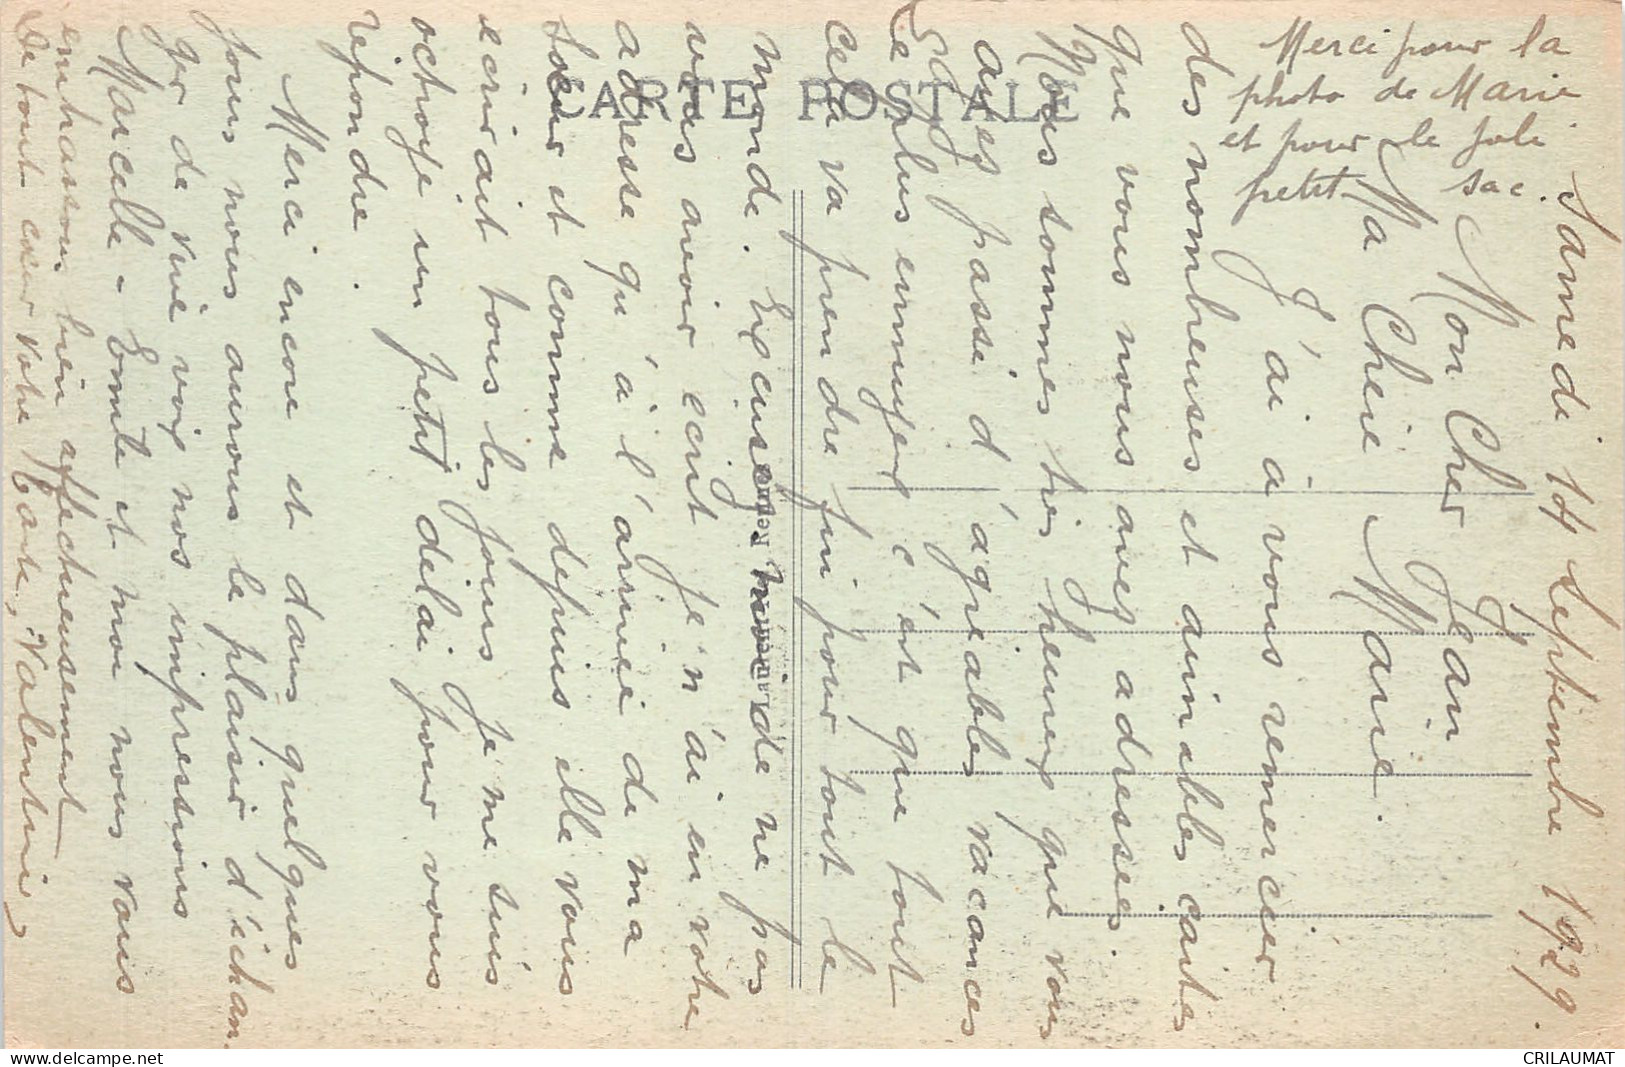 Samedi 14 Septembre 1929.
Mon Cher Jean
Ma Chère Marie.
J'ai à vous remercier
des nombreuses et aimables cartes
que vous nous avez adressées.
Nous sommes très heureux que vous
ayez passé d'agréables vacances
Le plus ennuyeux c'est que tout
cela va prendre fin pour tout le
monde. Excusez moi de ne pas
vous avoir écrit je n'ai eu votre
adresse qu'à l'arrivée de ma
Sœur et comme depuis elle vous
écrivait tous les jours je me suis
octroyé un petit délai pour vous
répondre.
Merci encore et dans quelques
jours nous aurons le plaisir d'échan-
ger de vive voix nos impressions
Marcelle - Emile et moi nous vous
embrassons bien affectueusement
De tout cœur votre Valentine
Merci pour la
photo de Marie
et pour le joli
petit sac.
CARTE POSTALE
CRILAUMAT